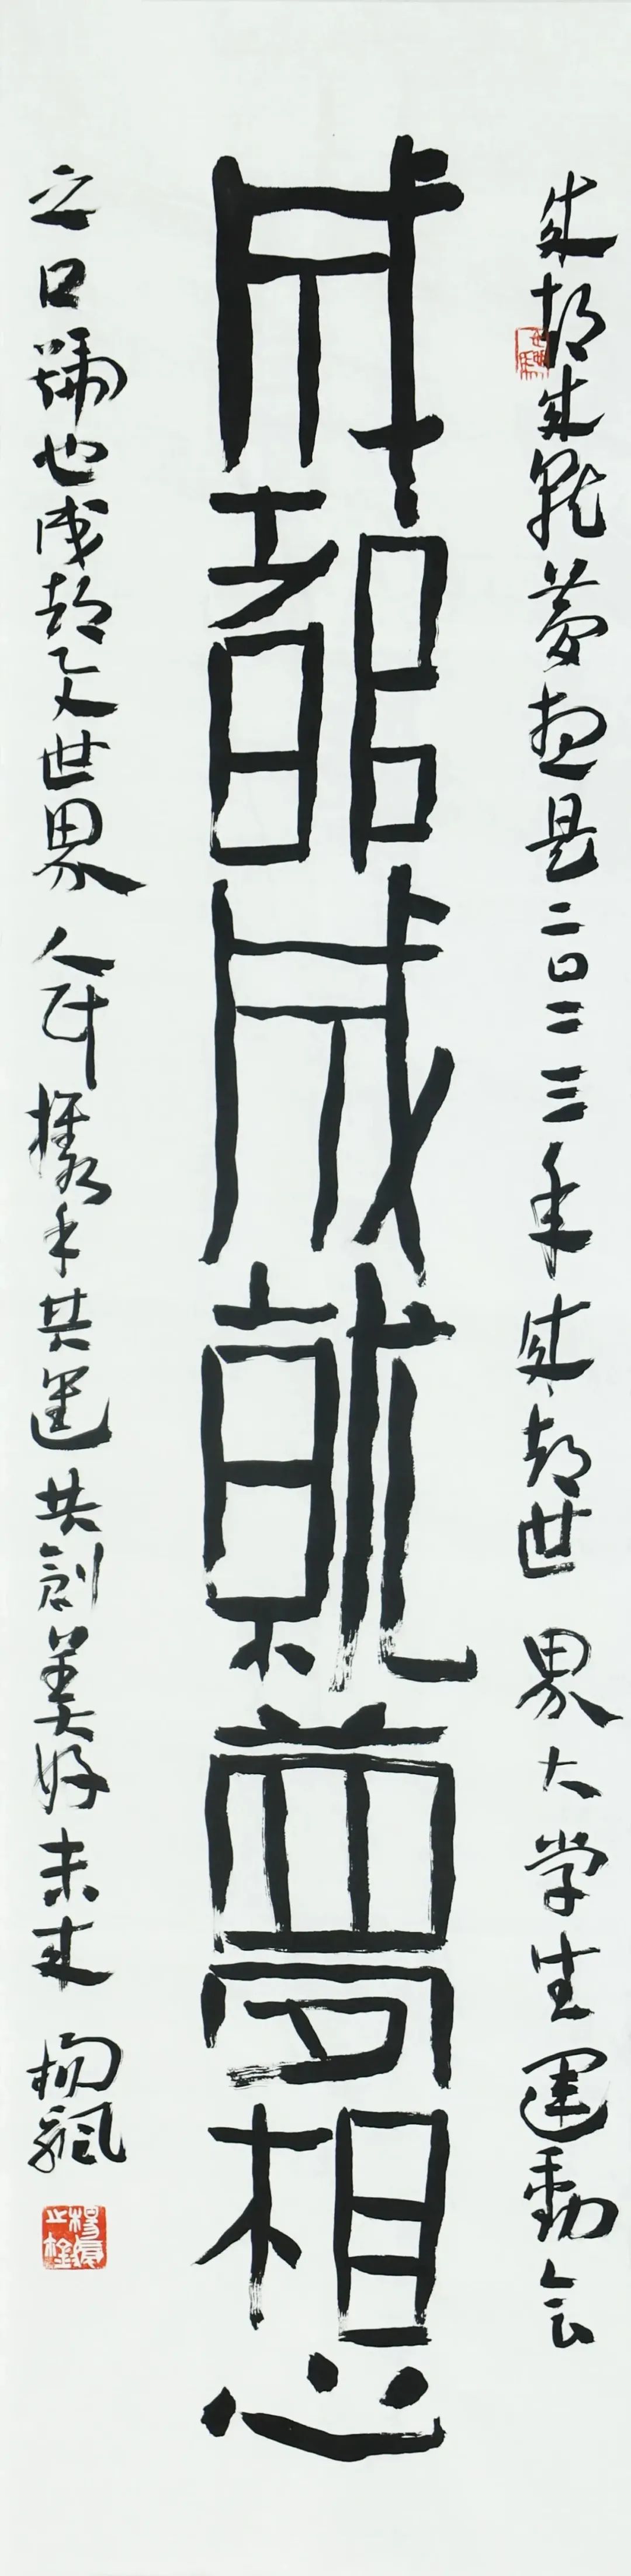 成都成就夢想是二〇二三年成都世界大学生運動会
成都成就夢想
之口號也成都世界人民攜手共建共創美好未来